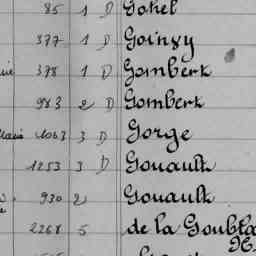 85 1 D Gohel
377 1 D Goinvy
378 1 D Gombert
983 2 D Gombert
1063 3 D Gorge
1253 3 D Gouault
930 2 Gouault
2268 5 de la Goubla